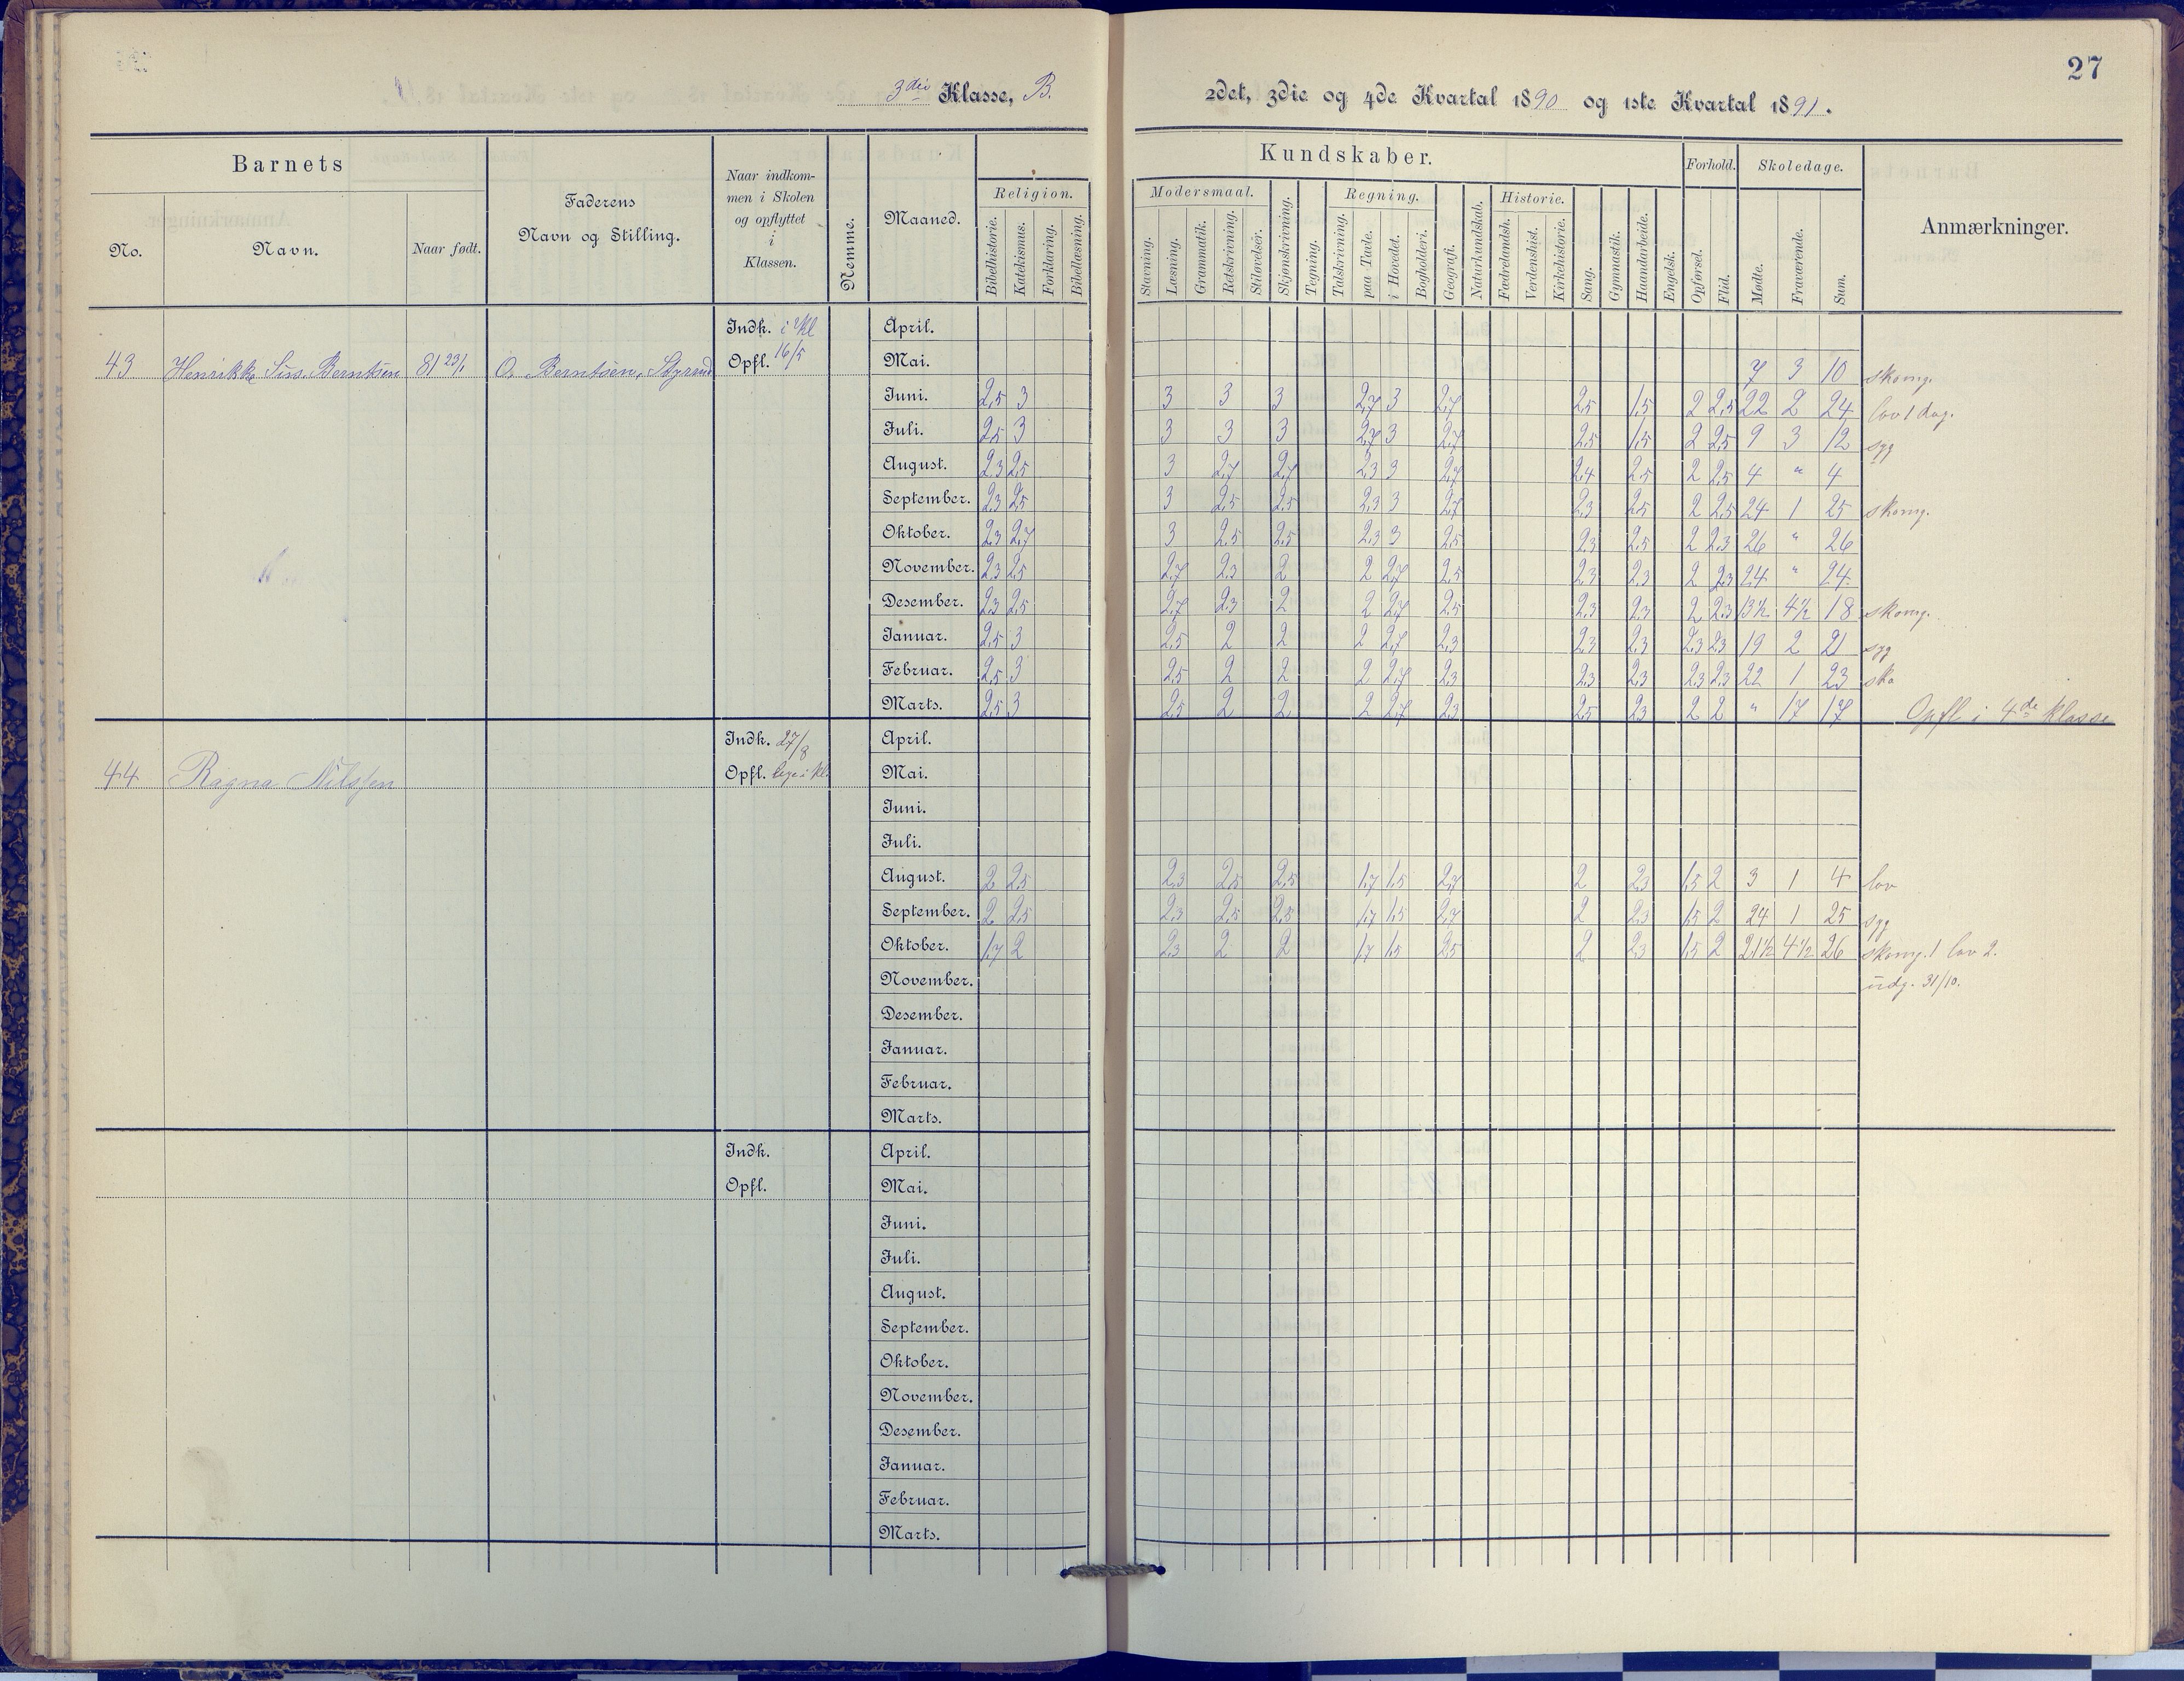 27
3die Klasse, B.
2det, 3die og 4de Kvartal 1890 og 1ste Kvartal 1891.
Barnets
No.
Navn.
Naar født.
Faderens
Navn og Stilling.
Naar indkom-
men i Skolen
og opflyttet
i
Klassen.
Nemme.
Maaned.
Kundskaber.
Religion.
Bibelhistorie.
Katekismus.
Forklaring.
Bibellæsning.
Modersmaal.
Stavning.
Læsning.
Grammatik.
Retskrivning.
Stiløvelser.
Skjønskrivning.
Tegning.
Regning.
Talskrivning.
paa Tavle.
i Hovedet.
Bogholderi.
Geografi.
Naturkundskab.
Historie.
Fædrelandsh.
Verdenshist.
Kirkehistorie.
Sang.
Gymnastik.
Haandarbeide.
Engelsk.
Forhold.
Opførsel.
Flid.
Skoledage.
Mødte.
Fraværende.
Sum.
Anmærkninger.
Indk. i Kl April.
43 Henrikke Berntsen 81 23/1 O. Berntsen, Styrmd Opfl. 16/5 Mai. 7 3 10 skomg.
Juni. 2,5 3 3 3 3 2,7 3 2,7 2,5 1,5 2 2,5 22 2 24 lov 1 dag.
Juli. 2,5 3 3 3 3 2,7 3 2,7 2,5 1,5 2 2,5 9 3 12 syg
August. 2,3 2,5 3 2,7 2,7 2,3 3 2,7 2,4 2,5 2 2,5 4 " 4
September. 2,3 2,5 3 2,5 2,5 2,3 3 2,7 2,3 2,5 2 2,5 24 1 25 skomg.
Oktober. 2,3 2,7 3 2,5 2,5 2,3 3 2,5 2,3 2,5 2 2,3 26 " 26
November. 2,3 2,5 2,7 2,3 2 2 2,7 2,5 2,3 2,3 2 2,3 24 " 24
Desember. 2,3 2,5 2,7 2,3 2 2 2,7 2,5 2,3 2,3 2 2,3 13½ 4½ 18 skomg.
Januar. 2,5 3 2,5 2 2 2 2,7 2,3 2,3 2,3 2,3 2,3 19 2 21 syg
Februar. 2,5 3 2,5 2 2 2 2,7 2,3 2,3 2,3 2,3 2,3 22 1 23 sko
Marts. 2,5 3 2,5 2 2 2 2,7 2,3 2,5 2,3 2 2 " 17 17 Opfl i 4de Klasse
Indk. 27/8 April.
44 Ragna Nilssen Opfl. i Kl. Mai.
Juni.
Juli.
August. 2 2,5 2,3 2,5 2,5 1,7 1,5 2,7 2 2,3 1,5 2 3 1 4 lov
September. 2 2,5 2,3 2,5 2,5 1,7 1,5 2,7 2 2,3 1,5 2 24 1 25 syg
Oktober. 1,7 2 2,3 2 2 1,7 1,5 2,5 2 2,3 1,5 2 21½ 4½ 26 skomg. 1 lov 2.
November. udg. 31/10.
Desember.
Januar.
Februar.
Marts.
Indk. April.
Opfl. Mai.
Juni.
Juli.
August.
September.
Oktober.
November.
Desember.
Januar.
Februar.
Marts.